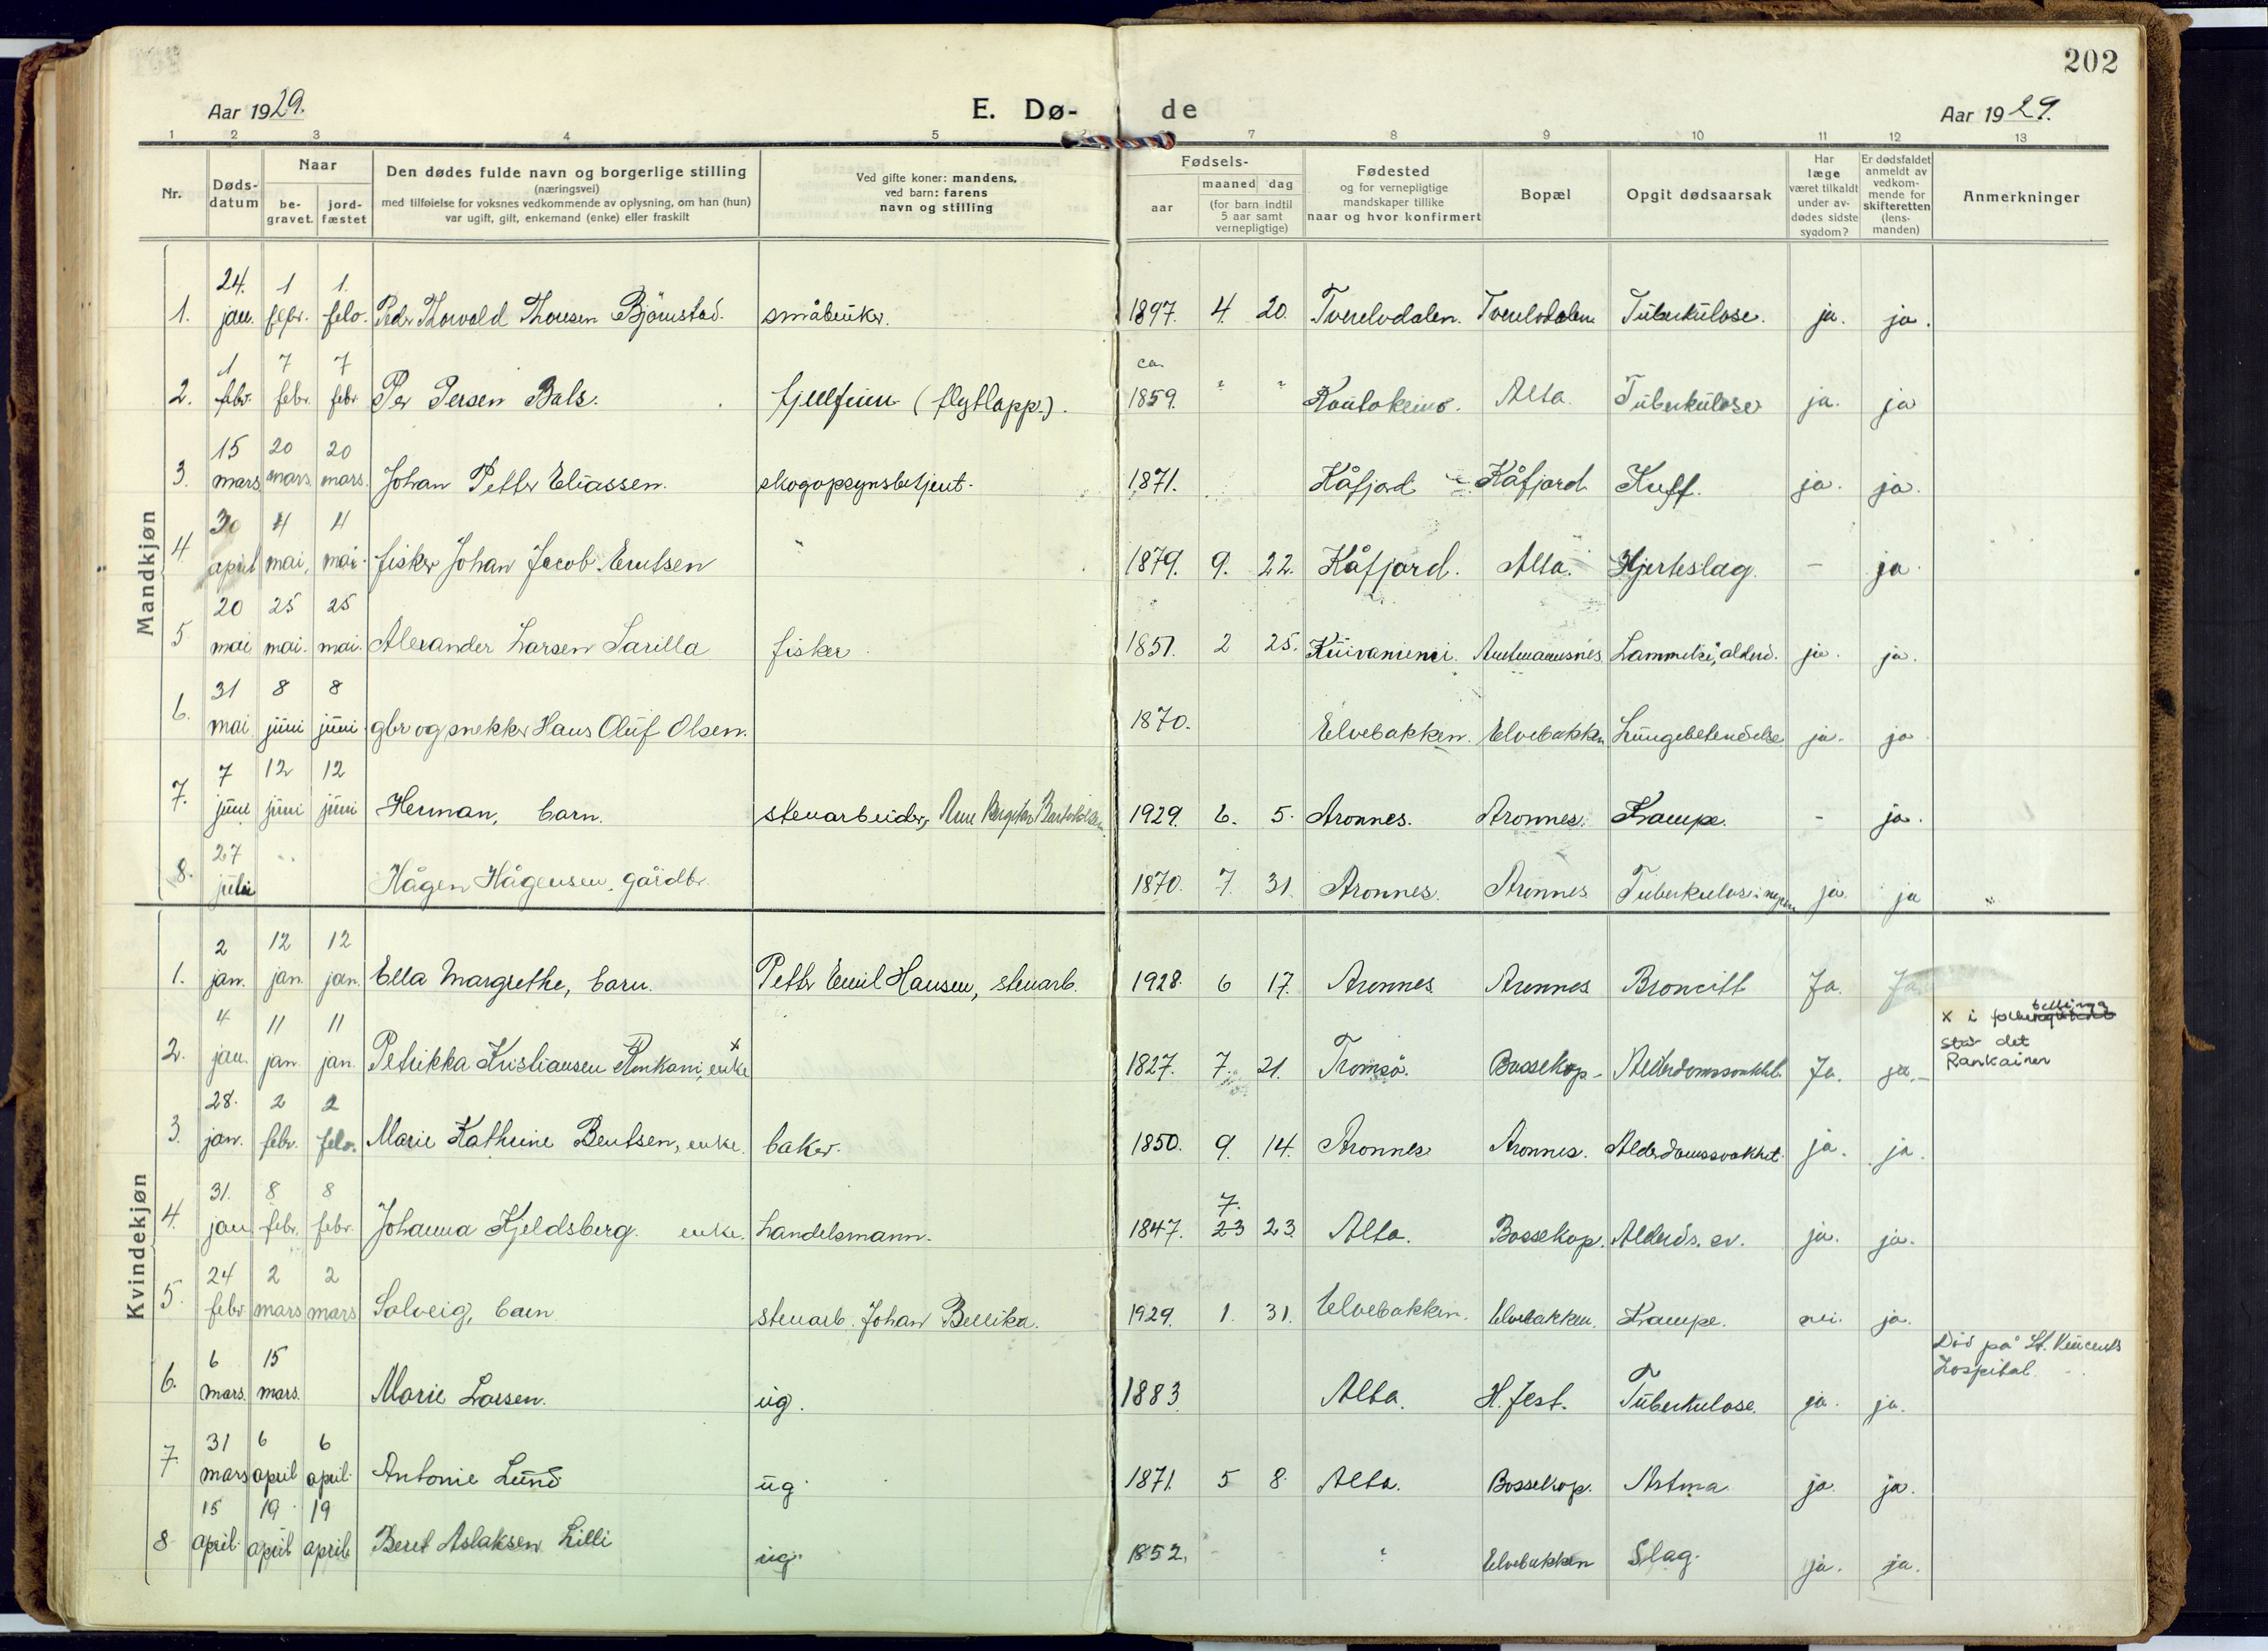 202
Aar 1929. E. Dø- de Aar 1929.
1 2 3 4 5 7 8 9 10 11 12 13
Nr. Døds-datum Naar be-gravet. jord-fæstet Den dødes fulde navn og borgerlige stilling (næringsvei) med tilføielse for voksnes vedkommende av oplysning, om han (hun) var ugift, gift, enkemand (enke) eller fraskilt Ved gifte koner: mandens, ved barn: farens navn og stilling Fødsels- aar maaned dag (for barn indtil 5 aar samt vernepligtige) Fødested og for vernepligtige mandskaper tillike naar og hvor konfirmert Bopæl Opgit dødsaarsak Har læge været tilkaldt under av-dødes sidste sygdom? Er dødsfaldet anmeldt av vedkom-mende for skifteretten (lens-manden) Anmerkninger
Mandkjøn
1. 24. jan. 1 febr. 1. febr. Peder Thorvald Thoresen Bjørnstad. småbruker. 1897. 4. 20. Tverelvdalen. Tverelvdalen Tuberkulose. ja. ja.
2. 1 febr. 7 febr. 7 febr. Per Persen Bals. fjellfinn (flytlapp.). ca. 1859. " " Kautokeino. Alta. Tuberkulose ja. ja
3. 15 mars. 20 mars. 20 mars. Johan Petter Eliassen. skogopsynsbetjent. 1871. Kåfjord Kåfjord Kreft. ja. ja.
4. 30 april 4 mai, 4 mai. fisker Johan Jacob Erntsen " 1879. 9. 22. Kåfjord. Alta. Hjerteslag. - ja.
5. 20 mai 25 mai. 25 mai. Alexander Larsen Sarilla fisker 1851. 2 25. Kuivaniemi. Lammelse, alderd. ja. ja.
6. 31 mai 8 juni 8 juni gbr og snekker Hans Oluf Olsen. 1870. Elvebakken. Elvebakken Lungebetendelse ja. ja
7. 7 juni 12 juni 12 juni Herman, barn. stenarbeider, 1929. 6. 5. Aronnes. Aronnes. Krampe. - ja.
8. 27 juli Hågen Hågensen, gårdbr. 1870. 7. 31. Aronnes. Aronnes. Tuberkulose i ja. ja "
Kvindekjøn
1. 2 jan. 12 jan. 12 jan. Ella Margrethe, barn. Petter Emil Hansen, stenarb. 1928. 6 17. Aronnes. Aronnes Broncitt Ja. Ja
2. 4 jan. 11 jan. 11 jan. Petrikka Kristiansen Rankani, enke x 1827. 7. 21. Tromsø. Bossekop - Alderdomssvakhet. Ja. ja. - x i
står det
Rankainen
3. 28. jan. 2 febr. 2 febr. Marie Kathrine Bentsen, enke. baker. 1850. 9. 14. Aronnes Aronnes. Alderdomssvakhet. ja. ja.
4. 31. jan 8 febr. 8 febr. Johanna Kjeldsberg. enke. handelsmann. 1847. 7. 23 23. Alta. Bossekop. Alderds. sv. ja. ja.
5. 24 febr 2 mars 2 mars Solveig, barn stenarb. Johan Bellika. 1929. 1. 31. Elvebakken. Elvebakken. Krampe. nei. ja.
6. 6 mars. 15 mars. Marie Larsen. ug. 1883 Alta. H.fest. Tuberkulose. ja. ja. Død på St. Vincents
hospital.
7. 31 mars 6 april 6 april. Antonie Lund ug. 1871. 5 8. Alta. Bossekop. Astma. ja. ja.
8 15 april. 19 april 19 april Beret Aslaksen Lilli ug. 1852. - - " Elvebakken Slag. ja. ja.